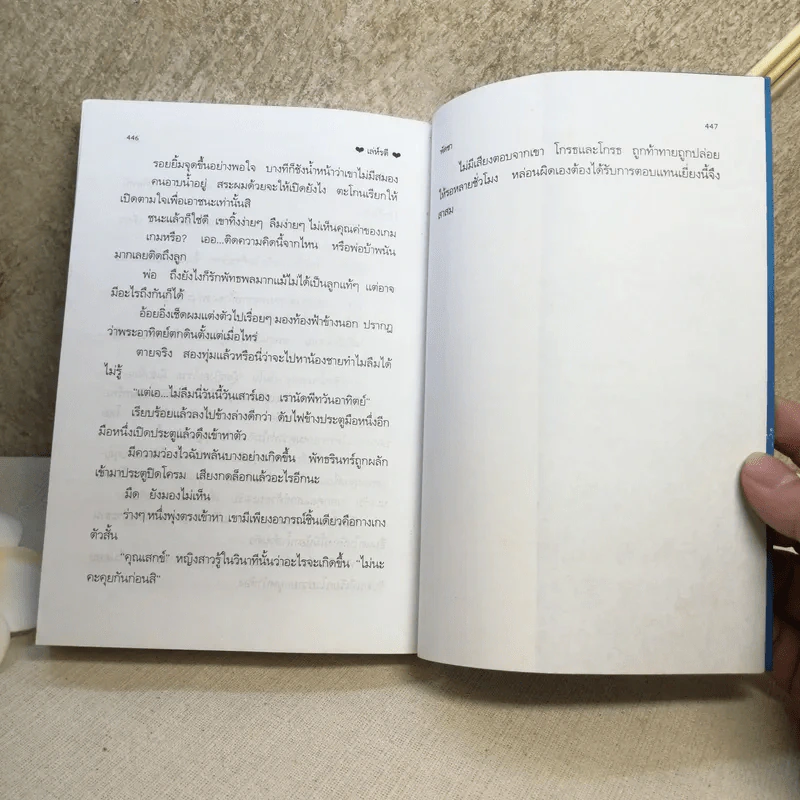 446
❤ เล่ห์รตี ❤
รอยยิ้มจุดขึ้นอย่างพอใจ บางทีก็ชังน้ำหน้าว่าเขาไม่มีสมอง
คนอาบน้ำอยู่ สระผมด้วยจะให้เปิดยังไง ตะโกนเรียกให้
เปิดตามใจเพื่อเอาชนะเท่านั้นสิ
ชนะแล้วก็ใช่ดี เขาทิ้งง่ายๆ ลืมง่ายๆ ไม่เห็นคุณค่าของเกม
เกมหรือ? เออ...ติดความคิดนี้จากไหน หรือพ่อบ้าพนัน
มากเลยติดถึงลูก
พ่อ ถึงยังไงก็รักพัทธพลมากแม้ไม่ได้เป็นลูกแท้ๆ แต่อาจ
มีอะไรถึงกันก็ได้
อ้อยอิ่งเช็ดผมแต่งตัวไปเรื่อยๆ มองท้องฟ้าข้างนอก ปรากฏ
ว่าพระอาทิตย์ตกดินตั้งแต่เมื่อไหร่
ตายจริง สองทุ่มแล้วหรือนี่ว่าจะไปหาน้องชายทำไมลืมได้
ไม่รู้
“แต่เอ...ไม่ลืมนี่วันนี้วันเสาร์เอง เรานัดพีทวันอาทิตย์”
เรียบร้อยแล้วลงไปข้างล่างดีกว่า ดับไฟข้างประตูมือหนึ่งอีก
มือหนึ่งเปิดประตูแล้วดึงเข้าหาตัว
มีความว่องไวฉับพลันบางอย่างเกิดขึ้น พัทธรินทร์ถูกผลัก
เข้ามาประตูปิดโครม เสียงกดล็อกแล้วอะไรอีกนะ
มืด ยังมองไม่เห็น
ว่างๆ หนึ่งพุ่งตรงเข้าหา เขามีเพียงอาภรณ์ชิ้นเดียวคือกางเกง
ตัวสั้น
“คุณเสกข์” หญิงสาวรู้ในวินาทีนั้นว่าอะไรจะเกิดขึ้น “ไม่นะ
คะคุยกันก่อนสิ”
447
ไม่มีเสียงตอบจากเขา โกรธและโกรธ ถูกท้าทายถูกปล่อย
ให้รอหลายชั่วโมง หล่อนผิดเองต้องได้รับการตอบแทนเยี่ยงนี้จึง
สาสม